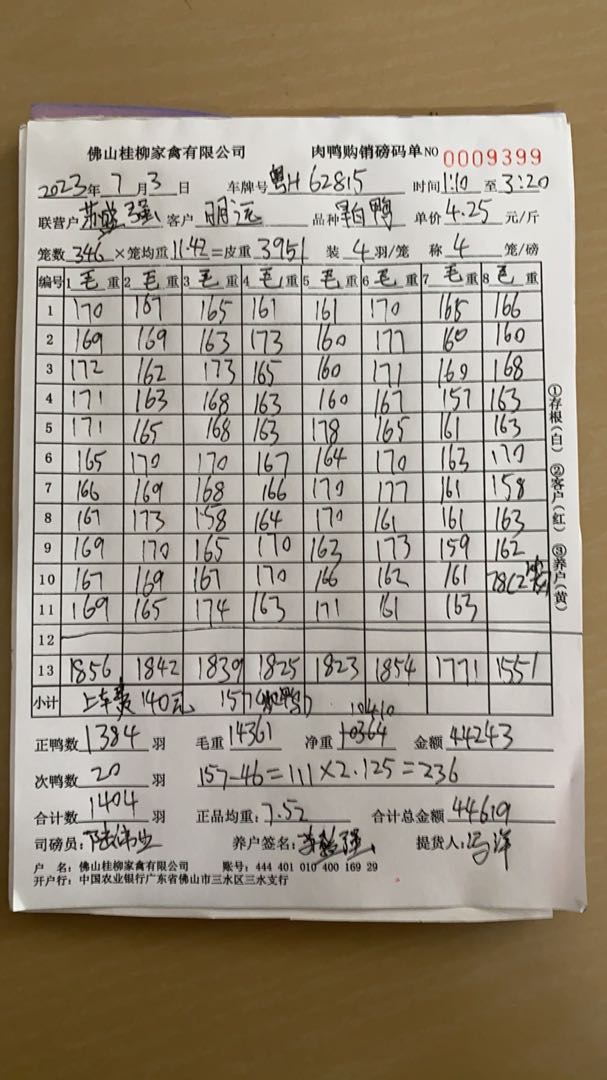 佛山桂柳家禽有限公司 肉鸭购销磅码单 NO 0009399
2023年 7月 3日 车牌号 粤H 62815 时间 1:10 至 3:20
联营户 苏盛强 客户 明远 品种 白鸭 单价 4.25 元/斤
笼数 346 ×笼均重 11.42 =皮重 3951 装 4 羽/笼 称 4 笼/磅
编号 1 毛 重 2 毛 重 3 毛 重 4 毛 重 5 毛 重 6 毛 重 7 毛 重 8 毛 重
1 170 167 165 161 161 170 165 166
2 169 169 163 173 160 177 160 160
3 172 162 173 165 160 171 169 168
4 171 163 168 163 160 167 157 163
5 171 165 168 163 178 165 161 163
6 165 170 170 167 164 170 163 170
7 166 169 168 166 170 177 161 158
8 167 173 158 164 170 161 161 163
9 169 170 165 170 163 173 159 162
10 167 169 167 170 166 162 161 78(2
11 169 165 174 163 171 161 163
12
13 1856 1842 1839 1825 1823 1854 1771 1551
小计 上车费 140元 157
10410
正鸭数 1384 羽 毛重 14361 净重 10364 金额 44243
次鸭数 20 羽 157-46=111×2.125=236
合计数 1404 羽 正品均重: 7.52 合计总金额 44619
司磅员: 养户签名: 提货人:
户 名: 佛山桂柳家禽有限公司 账号: 444 401 010 400 169 29
开户行: 中国农业银行广东省佛山市三水区三水支行
①存根(白) ②客户(红) ③养户(黄)